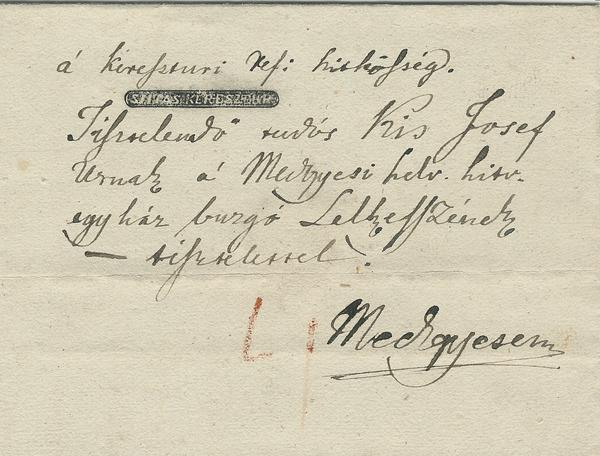 á kereszturi refi hitközség.
SZITÁS KERESZTUR
Tisztelendő tudós Kis Josef
Urnak á Medgyesi helv. hitv.
egyház buzgó Lelkesszének
— tisztelettel.
Medgyesen